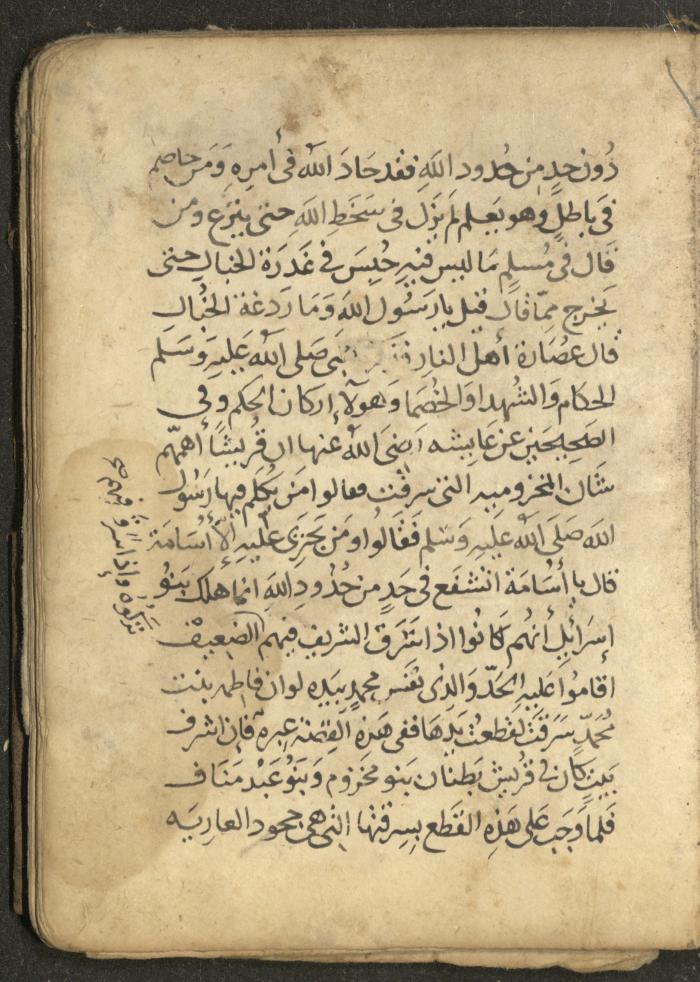 دُون حدٍ من حُدود اللهِ فقد حَادَ اللهَ فى أمره وَمَن خاصم
فى باطلٍ وهو يَعلم لم يَزَل فى سَخَطِ اللهِ حتى ينزع ومن
قال فى مُسلمٍ مَا ليس فيهِ حُبِسَ فى غَدَرَة الخبال حتى
يخرج ممّا قال قيل يا رَسُول الله وَمَا ردغة الخُبال
قال عصارة أهل النار النبى صَلى الله عَليهِ وَسَلم
الحكام وَالشُهدا وَالخُصَما وَهولاٍ اركان الحكم وفى
الصَحِيحَين عَن عَايشه رَضىَ اللهُ عنها ان قُريشًا أهمّهم
شَان المخزوميه التى سرقت فقالوا مَن يُكلم فيها رَسُول
الله صَلَى الله عليهِ وَسَلم فَقَالُوا وَمَن يَجتَرِى عَليهِ إلاّ أسَامَة
قال يا أسَامَة اتشفع فى حَدٍ من حُدُودِ اللهِ انما هلك بَنُو
إسرَائيل أنهُم كَانُوا اذا سَرَق الشريف فيهم الضعيف
اقامُوا عَليهِ الحَدّ وَالذِى نفس محمدٍ بيَدِه لو ان فاطمه بنت
مُحَمّدٍ سَرَقَت لقطعتُ يَدهَا ففى هَذِه القِصّة عِبرة فإن اشرف
بَيتٍ كان فى قُريش بَطنان بَنو مخزوم وَبَنُو عَبْد مَنَاف
فلما وَجَب عَلى هَذِهِ القَطع بسرقتها التى هى جحود العاريَه
تركوهُ وَإذا سَرَق فيهم صح